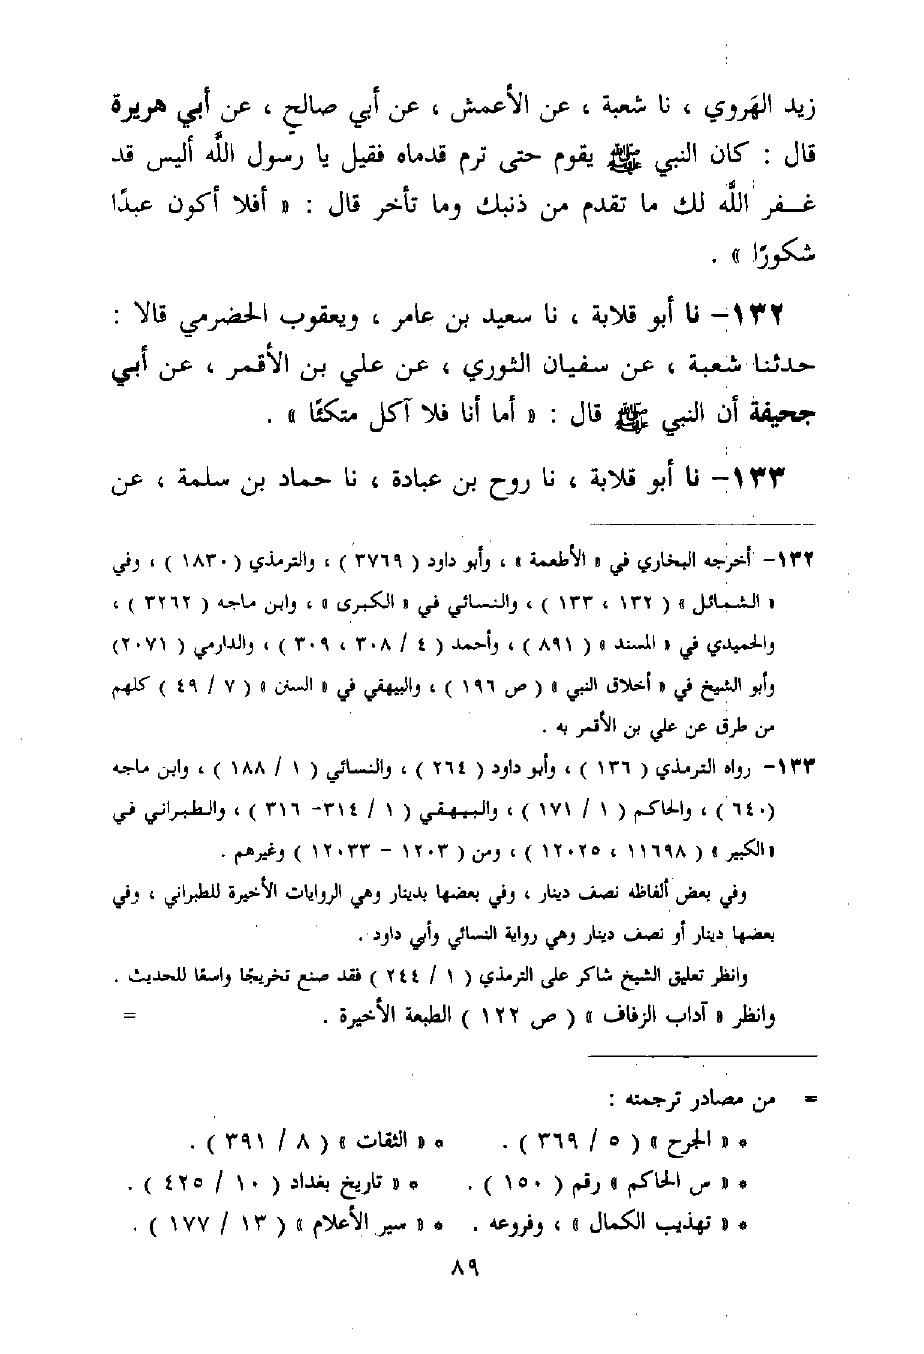 زيد الهَروي ، نا شعبة ، عن الأعمش ، عن أبي صالح ، عن أبي هريرة
قال : كان النبي ﷺ يقوم حتى ترم قدماه فقيل يا رسول اللَّه أليس قد
غـفر اللَّه لك ما تقدم من ذنبك وما تأخر قال : « أفلا أكون عبدًا
شكورًا » .
١٣٢– نا أبو قلابة ، نا سعيد بن عامر ، ويعقوب الحضرمي قالا :
حدثنا شعبة ، عن سفيان الثوري ، عن علي بن الأقمر ، عن أبي
جحيفة أن النبي ﷺ قال : « أما أنا فلا آكل متكئًا » .
١٣٣– نا أبو قلابة ، نا روح بن عبادة ، نا حماد بن سلمة ، عن
١٣٢– أخرجه البخاري في « الأطعمة » ، وأبو داود ( ٣٧٦٩ ) ، والترمذي ( ١٨٣٠ ) ، وفي
« الشمائل » ( ١٣٢ ، ١٣٣ ) ، والنسائي في « الكبرى » ، وابن ماجه ( ٣٢٦٢ ) ،
والحميدي في « المسند » ( ٨٩١ ) ، وأحمد ( ٤ / ٣٠٨ ، ٣٠٩ ) ، والدارمي ( ٢٠٧١)
وأبو الشيخ في « أخلاق النبي » ( ص ١٩٦ ) ، والبيهقي في « السنن » ( ٧ / ٤٩ ) كلهم
من طرق عن علي بن الأقمر به .
١٣٣– رواه الترمذي ( ١٣٦ ) ، وأبو داود ( ٢٦٤ ) ، والنسائي ( ١ / ١٨٨ ) ، وابن ماجه
(٦٤٠ ) ، والحاكم ( ١ / ١٧١ ) ، والبيهقي ( ١ / ٣١٤– ٣١٦ ) ، والطبراني في
«الكبير » ( ١١٦٩٨ ، ١٢٠٢٥ ) ، ومن ( ١٢٠٣ – ١٢٠٣٣ ) وغيرهم .
وفي بعض ألفاظه نصف دينار ، وفي بعضها بدينار وهي الروايات الأخيرة للطبراني ، وفي
بعضها دينار أو نصف دينار وهي رواية النسائي وأبي داود .
وانظر تعليق الشيخ شاكر على الترمذي ( ١ / ٢٤٤ ) فقد صنع تخريجًا واسعًا للحديث .
وانظر « آداب الزفاف » ( ص ١٢٢ ) الطبعة الأخيرة . =
= من مصادر ترجمته :
* « الجرح » ( ٥ / ٣٦٩ ) . * « الثقات » ( ٨ / ٣٩١ ) .
* « س الحاكم » رقم ( ١٥٠ ) . * « تاريخ بغداد ( ١٠ / ٤٢٥ ) .
* « تهذيب الكمال » ، وفروعه . * « سير الأعلام » ( ١٣ / ١٧٧ ) .
٨٩